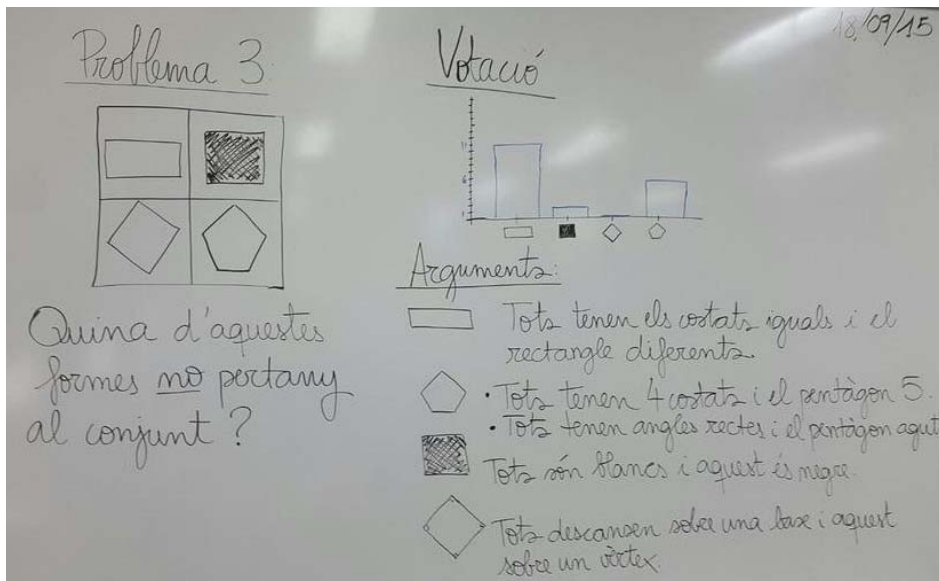 18/09/15
Problema 3
Quina d'aquestes
formes no pertany
al conjunt?
Votació
11
6
1
Arguments:
Tots tenen els costats iguals i el
rectangle diferents.
• Tots tenen 4 costats i el pentàgon 5.
• Tots tenen angles rectes i el pentàgon agut
Tots són blancs i aquest és negre.
Tots descansen sobre una base i aquest
sobre un vèrtex.